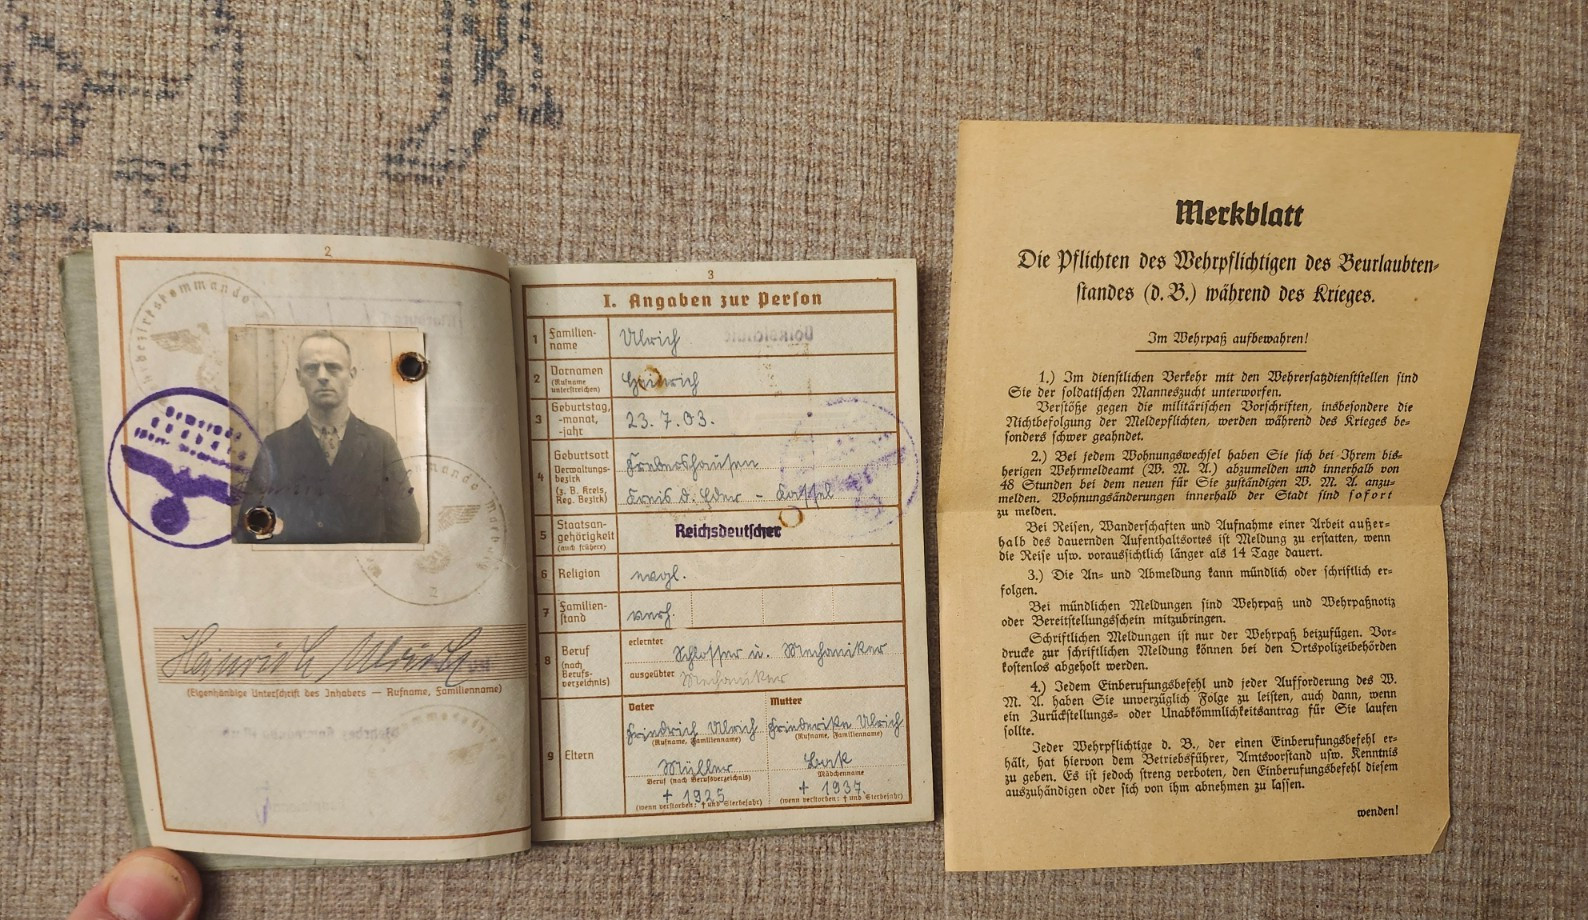 2
Heinrich Ulrich
(Eigenhändige Unterschrift des Inhabers — Rufname, Familienname)
3
I. Angaben zur Person
1 Familien-
name
Ulrich
2 Vornamen
(Rufname
unterstreichen)
Heinrich
3 Geburtstag,
-monat,
-jahr
23. 7. 03.
4 Geburtsort
Verwaltungs-
bezirk
(z. B. Kreis,
Reg. Bezirk)
Frebershausen
Kreis d. Eder - Kassel
5 Staatsan-
gehörigkeit
(auch frühere)
Reichsdeutscher
6 Religion
evgl.
7 Familien-
stand
verh.
8 Beruf
(nach
Berufs-
verzeichnis)
erlernter
Schlosser u. Mechaniker
ausgeübter
Mechaniker
9 Eltern
Vater
Friedrich Ulrich
(Rufname, Familienname)
Müller
Beruf (nach Berufsverzeichnis)
+ 1925
(wenn verstorben: † und Sterbejahr)
Mutter
Friederike Ulrich
(Rufname, Familienname)
Mädchenname
+ 1937.
(wenn verstorben: † und Sterbejahr)
Merkblatt
Die Pflichten des Wehrpflichtigen des Beurlaubten-
standes (d. B.) während des Krieges.
Im Wehrpaß aufbewahren!
1.) Im dienstlichen Verkehr mit den Wehrersatzdienststellen sind
Sie der soldatischen Manneszucht unterworfen.
Verstöße gegen die militärischen Vorschriften, insbesondere die
Nichtbefolgung der Meldepflichten, werden während des Krieges be-
sonders schwer geahndet.
2.) Bei jedem Wohnungswechsel haben Sie sich bei Ihrem bis-
herigen Wehrmeldeamt (W. M. A.) abzumelden und innerhalb von
48 Stunden bei dem neuen für Sie zuständigen W. M. A. anzu-
melden. Wohnungsänderungen innerhalb der Stadt sind sofort
zu melden.
Bei Reisen, Wanderschaften und Aufnahme einer Arbeit außer-
halb des dauernden Aufenthaltsortes ist Meldung zu erstatten, wenn
die Reise usw. voraussichtlich länger als 14 Tage dauert.
3.) Die An- und Abmeldung kann mündlich oder schriftlich er-
folgen.
Bei mündlichen Meldungen sind Wehrpaß und Wehrpaßnotiz
oder Bereitstellungsschein mitzubringen.
Schriftlichen Meldungen ist nur der Wehrpaß beizufügen. Vor-
drucke zur schriftlichen Meldung können bei den Ortspolizeibehörden
kostenlos abgeholt werden.
4.) Jedem Einberufungsbefehl und jeder Aufforderung des W.
M. A. haben Sie unverzüglich Folge zu leisten, auch dann, wenn
ein Zurückstellungs- oder Unabkömmlichkeitsantrag für Sie laufen
sollte.
Jeder Wehrpflichtige d. B., der einen Einberufungsbefehl er-
hält, hat hiervon dem Betriebsführer, Amtsvorstand usw. Kenntnis
zu geben. Es ist jedoch streng verboten, den Einberufungsbefehl diesem
auszuhändigen oder sich von ihm abnehmen zu lassen.
wenden!